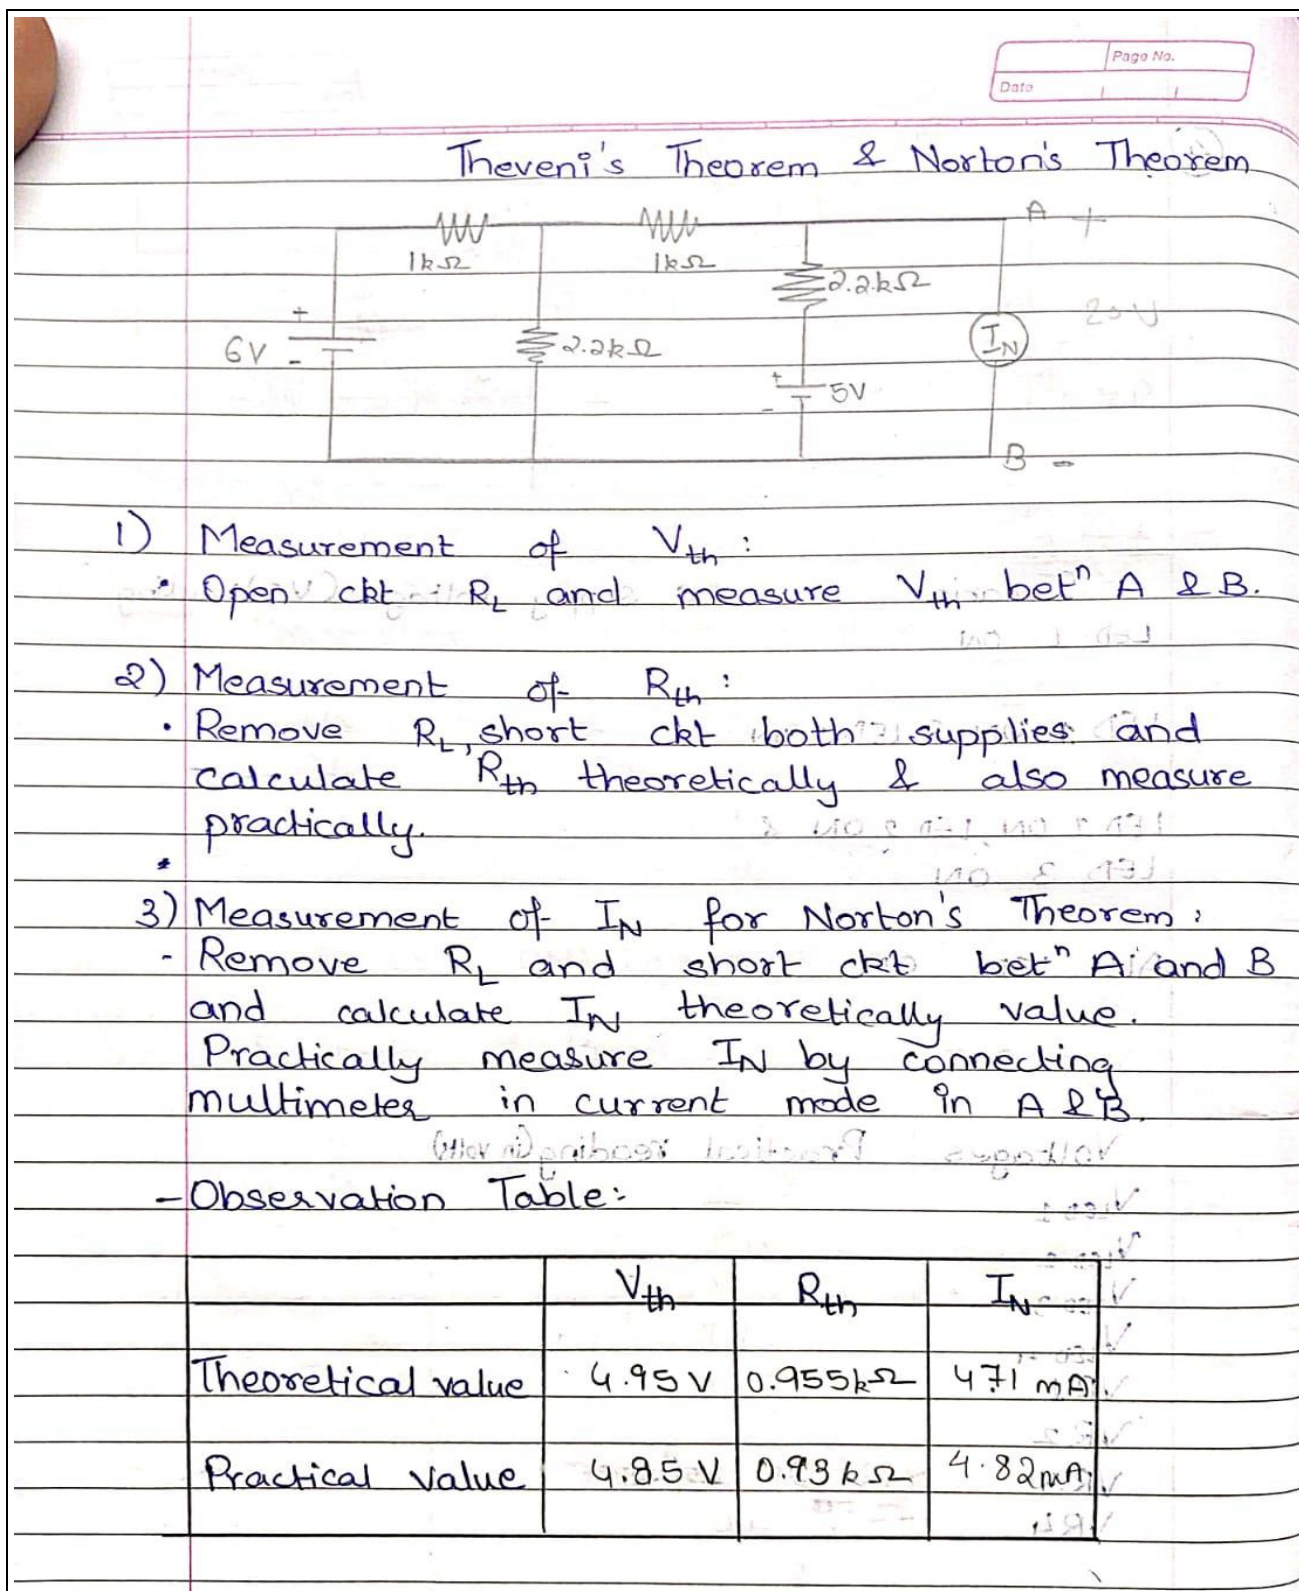 Page No.
Date
Theveni's Theorem & Norton's Theorem
A +
1kΩ 1kΩ
2.2kΩ
+
6V - 2.2kΩ IN 20V
+ 5V
-
B -
1) Measurement of Vth :
• Open ckt RL and measure Vth betⁿ A & B.
2) Measurement of Rth :
• Remove RL, short ckt both supplies and
calculate Rth theoretically & also measure
practically.
3) Measurement of IN for Norton's Theorem :
- Remove RL and short ckt betⁿ A and B
and calculate IN theoretically value.
Practically measure IN by connecting
multimeter in current mode in A & B.
- Observation Table:
Vth Rth IN
Theoretical value 4.95 V 0.955kΩ 4.71 mA
Practical value 4.85 V 0.93 kΩ 4.82mA